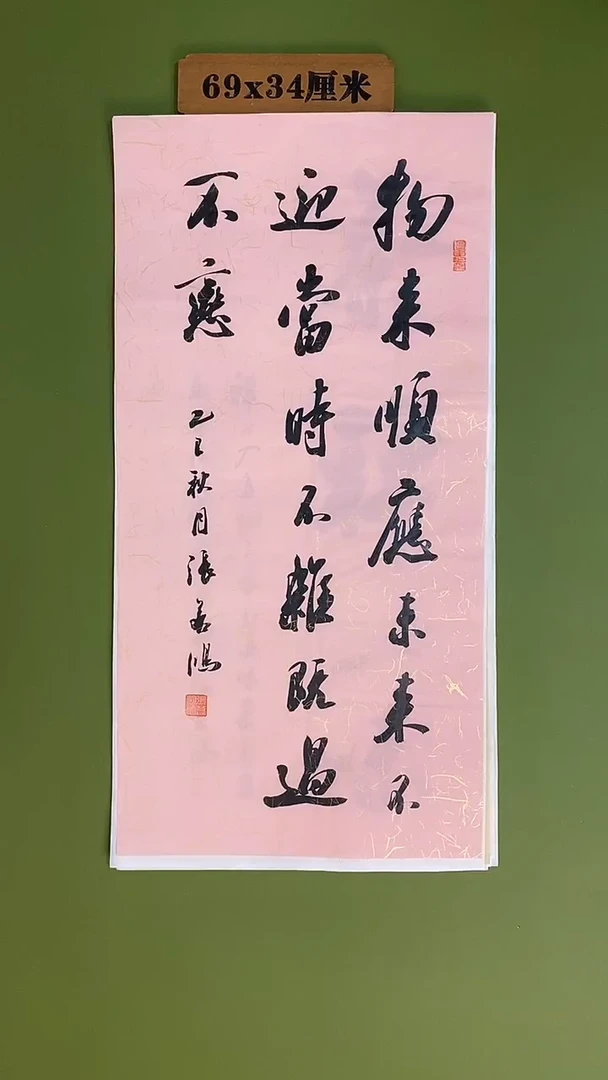 69x34厘米
物来順應未来不
迎當時不雜既過
不戀
乙巳秋月張